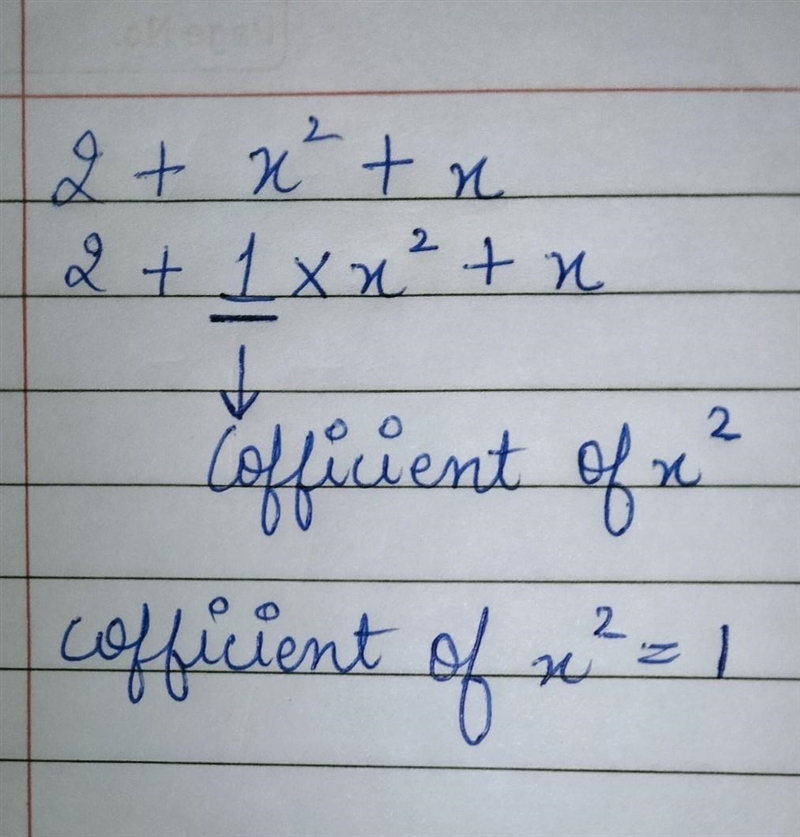 Page No.
2 + x² + x
2 + 1 × x² + x
↓
Cofficient of x²
cofficient of x² = 1